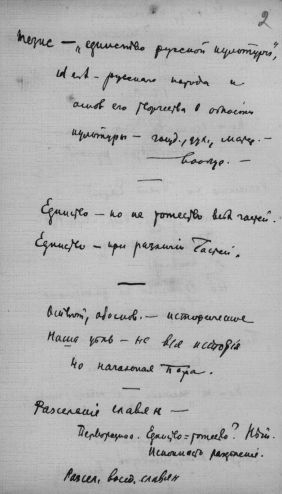 2
Тезис — „единство русской культуры",
id est — русского народа и
основ его творчества в области
культуры — госуд., дух., матер. —
вообще. —
Единство — но не тожество всѣхъ частей.
Единство — при различіи частей.
Основной, обоснов. — историческое
Наша цѣль — не вся исторія
но начальная пора.
Разселеніе славян —
Первородное. Единство = тожество? Нѣт.
Исконность раздѣленія.
Рассел. вост. славян